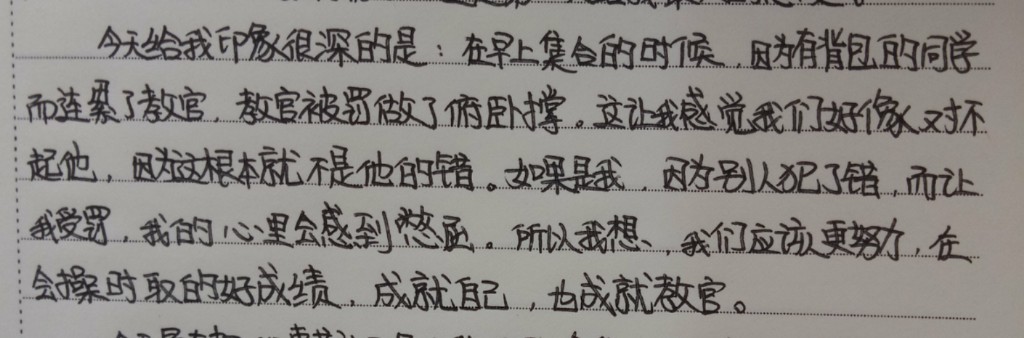 今天给我印象很深的是：在早上集合的时候，因为有背包的同学
而连累了教官，教官被罚做了俯卧撑。这让我感觉我们好像对不
起他，因为这根本就不是他的错。如果是我，因为别人犯了错，而让
我受罚，我的心里会感到憋屈。所以我想、我们应该更努力，在
会操时取的好成绩，成就自己，也成就教官。